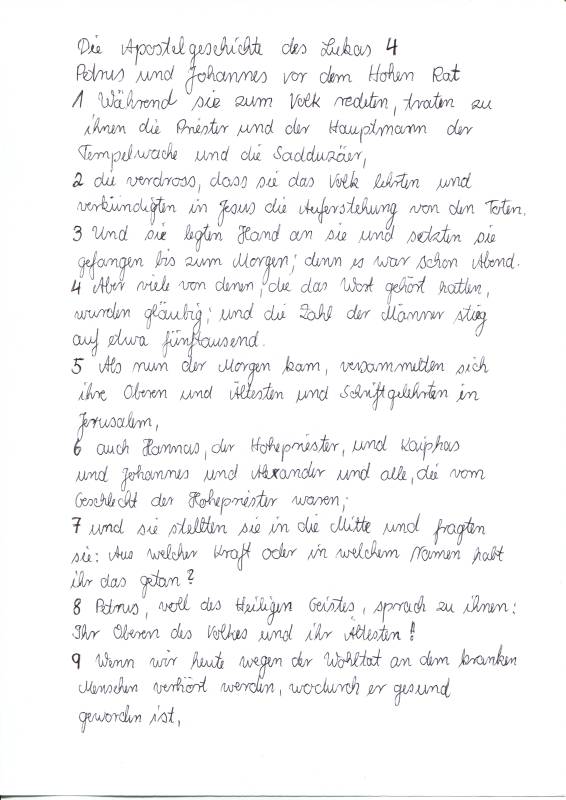 Die Apostelgeschichte des Lukas 4
Petrus und Johannes vor dem Hohen Rat
1 Während sie zum Volk redeten, traten zu
ihnen die Priester und der Hauptmann der
Tempelwache und die Sadduzäer,
2 die verdross, dass sie das Volk lehrten und
verkündigten in Jesus die Auferstehung von den Toten.
3 Und sie legten Hand an sie und setzten sie
gefangen bis zum Morgen; denn es war schon Abend.
4 Aber viele von denen, die das Wort gehört hatten,
wurden gläubig; und die Zahl der Männer stieg
auf etwa fünftausend.
5 Als nun der Morgen kam, versammelten sich
ihre Oberen und Ältesten und Schriftgelehrten in
Jerusalem,
6 auch Hannas, der Hohepriester, und Kaiphas
und Johannes und Alexander und alle, die vom
Geschlecht der Hohepriester waren;
7 und sie stellten sie in die Mitte und fragten
sie: Aus welcher Kraft oder in welchem Namen habt
ihr das getan?
8 Petrus, voll des Heiligen Geistes, sprach zu ihnen:
Ihr Oberen des Volkes und ihr Ältesten!
9 Wenn wir heute wegen der Wohltat an dem kranken
Menschen verhört werden, wodurch er gesund
geworden ist,